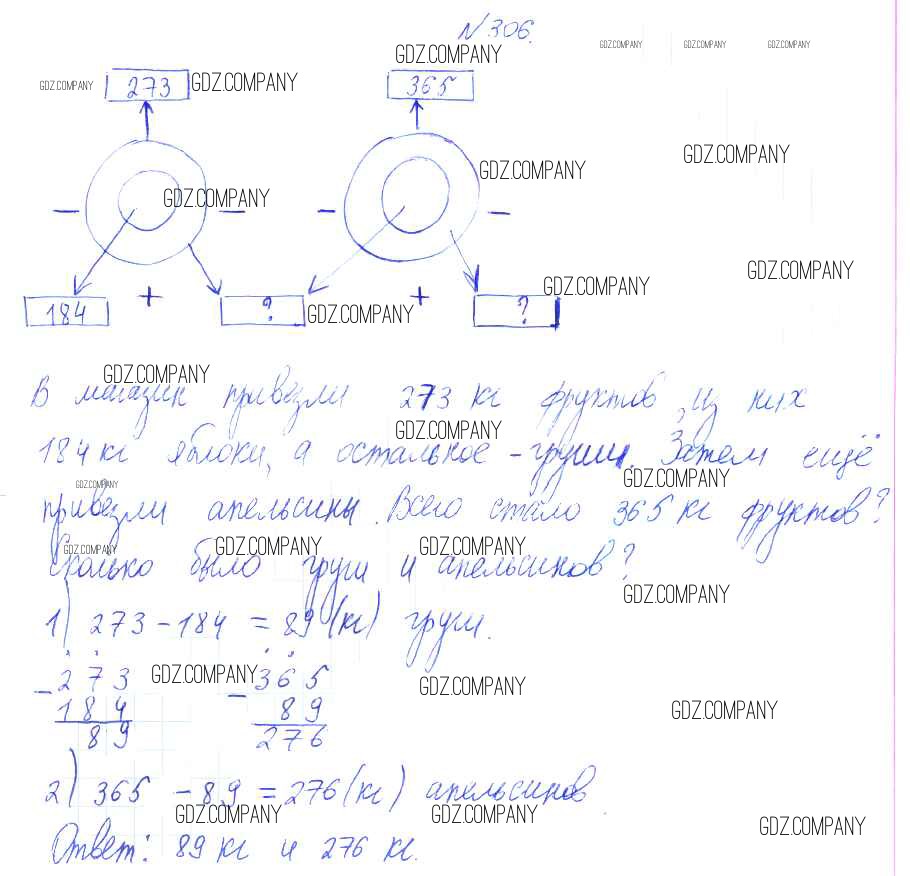 №306.
GDZ.COMPANY GDZ.COMPANY GDZ.COMPANY GDZ.COMPANY
GDZ.COMPANY 273 GDZ.COMPANY 365
GDZ.COMPANY GDZ.COMPANY
GDZ.COMPANY
- - - -
GDZ.COMPANY
GDZ.COMPANY
184 + ? GDZ.COMPANY + ?
GDZ.COMPANY
В магазин привезли 273 кг фруктов, из них
GDZ.COMPANY
184 кг яблоки, а остальное - груши. Затем ещё
GDZ.COMPANY GDZ.COMPANY
привезли апельсины. Всего стало 365 кг фруктов?
GDZ.COMPANY GDZ.COMPANY GDZ.COMPANY
Сколько было груш и апельсинов?
GDZ.COMPANY
1) 273 - 184 = 89 (кг) груш.
- 273 GDZ.COMPANY - 365 GDZ.COMPANY
184 89 GDZ.COMPANY
89 276
2) 365 - 89 = 276 (кг) апельсинов
GDZ.COMPANY GDZ.COMPANY GDZ.COMPANY
Ответ: 89 кг и 276 кг.